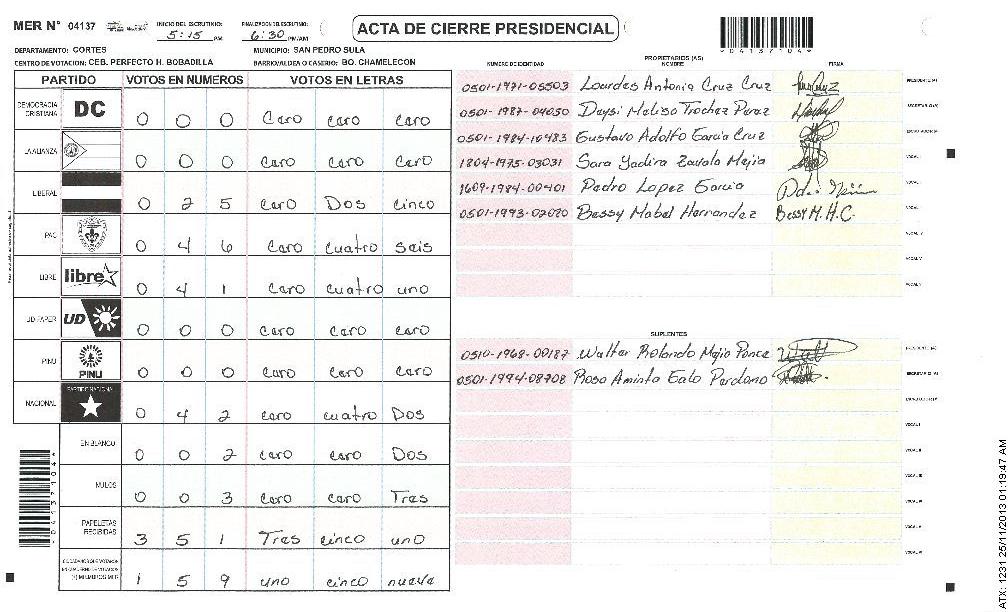 MER N° 04137 INICIO DEL ESCRUTINIO: 5:15 PM FINALIZACION DEL ESCRUTINIO: 6:30 PM/AM
ACTA DE CIERRE PRESIDENCIAL
*04137104*
DEPARTAMENTO: CORTES MUNICIPIO: SAN PEDRO SULA
CENTRO DE VOTACION: CEB. PERFECTO H. BOBADILLA BARRIO/ALDEA O CASERIO: BO. CHAMELECON
PARTIDO VOTOS EN NUMEROS VOTOS EN LETRAS
DEMOCRACIA CRISTIANA DC 0 0 0 Caro caro caro
LA ALIANZA 0 0 0 Caro caro caro
LIBERAL 0 2 5 Caro Dos cinco
PAC 0 4 6 Caro cuatro seis
LIBRE libre 0 4 1 Caro cuatro uno
UD-FAPER UD 0 0 0 Caro caro caro
PINU PINU 0 0 0 Caro caro caro
NACIONAL PARTIDO NACIONAL 0 4 2 caro cuatro Dos
EN BLANCO 0 0 2 caro caro Dos
NULOS 0 0 3 caro caro Tres
PAPELETAS RECIBIDAS 3 5 1 Tres cinco uno
1 5 9 uno cinco nueve
PROPIETARIOS (AS)
NUMERO DE IDENTIDAD NOMBRE FIRMA
0501-1971-05503 Lourdes Antonia Cruz Cruz PRESIDENTE (A)
0501-1987-04050 Daysi Melisa Trochez Perez SECRETARIO (A)
0501-1984-10483 Gustavo Adolfo Garcia Cruz ESCRUTADOR (A)
1804-1975-03031 Sara Yadira Zavala Mejia VOCAL I
1609-1984-00401 Pedro Lopez Garcia VOCAL
0501-1993-02020 Bessy Mabel Hernandez Bessy M. H.C. VOCAL
VOCAL IV
VOCAL V
VOCAL
SUPLENTES
0510-1968-00187 Walter Rolando Mejia Ponce PRESIDENTE (A)
0501-1994-08708 Rosa Aminta Galo Perdomo SECRETARIO (A)
ESCRUTADOR (A)
VOCAL I
VOCAL II
VOCAL III
VOCAL IV
VOCAL V
VOCAL VI
*04137104*
ATX: 1231 25/11/2013 01:19:47 AM